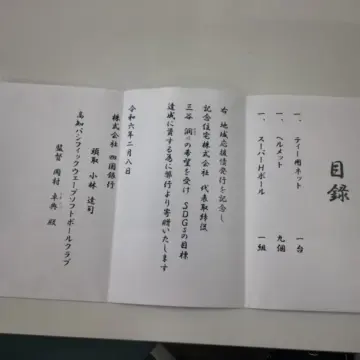 目録
一、ティー用ネット 一台
一、ヘルメット 九個
一、スーパーHボール 一組
右 地域応援債発行を記念し
記念住宅株式会社 代表取締役
三谷 潤一の希望を受け SDGsの目標
達成に資する為に弊行より寄贈いたします
令和六年二月八日
株式会社 四国銀行
頭取 小林 達司
高知パシフィックウェーブソフトボールクラブ
監督 岡村 幸典 殿